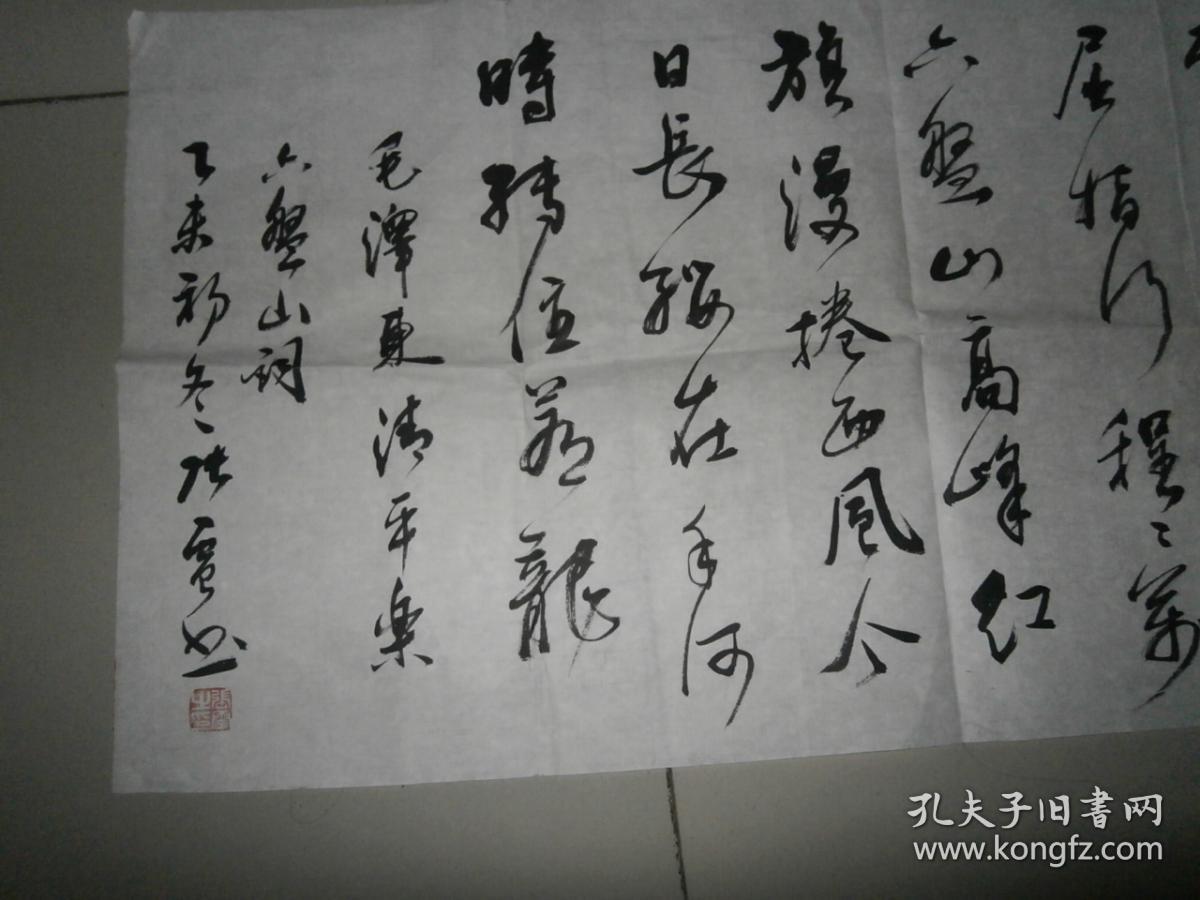 屈指行程二萬
六盤山高峰红
旗漫捲西風今
日長纓在手何
時縛住蒼龍
毛澤東清平樂
六盤山詞
乙未初冬张书
孔夫子旧书网
www.kongfz.com